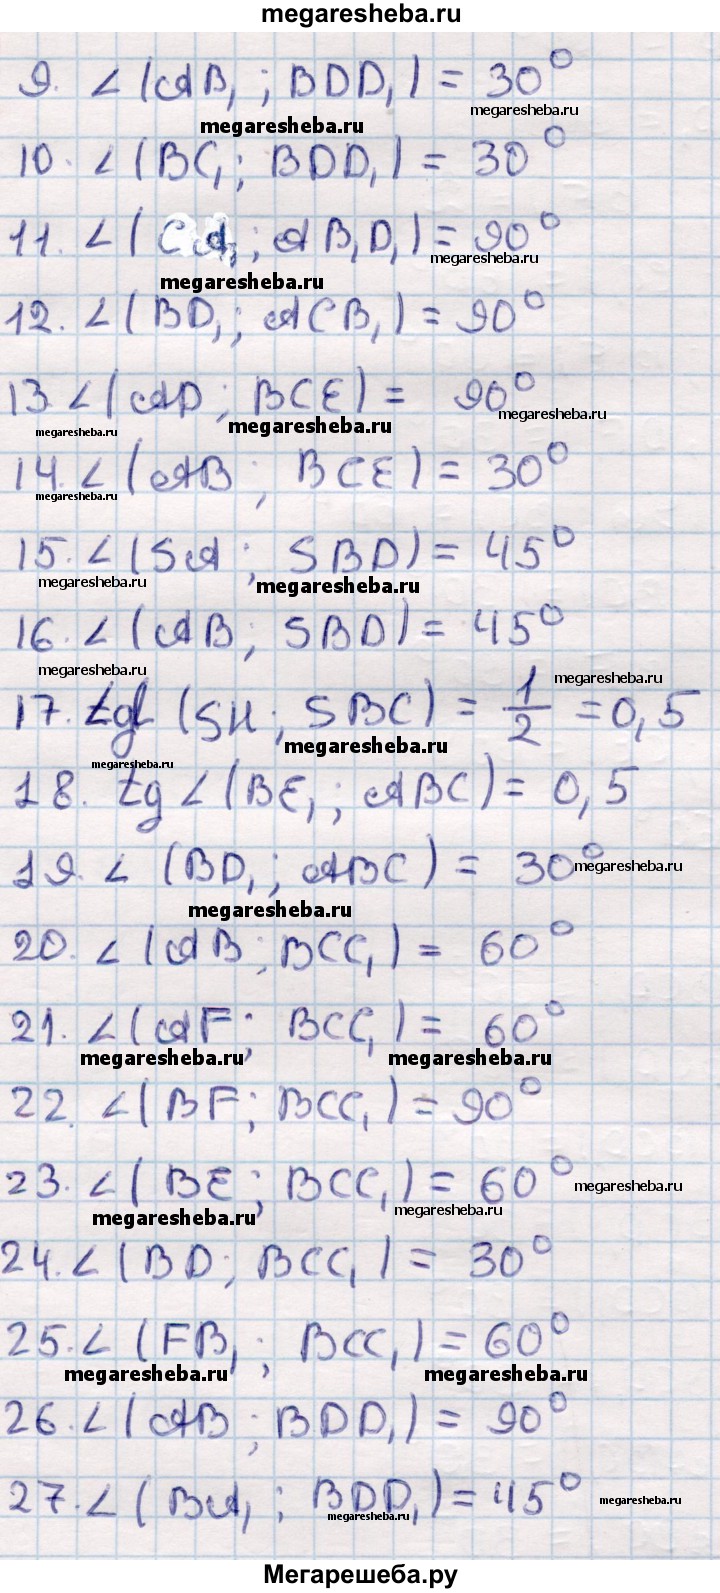 megaresheba.ru
9. ∠(AB₁; BDD₁) = 30°
megaresheba.ru
megaresheba.ru
10. ∠(BC₁; BDD₁) = 30°
11. ∠(CA₁; AB₁D₁) = 90°
megaresheba.ru
megaresheba.ru
12. ∠(BD₁; ACB₁) = 90°
13. ∠(AD; BCE) = 90°
megaresheba.ru
megaresheba.ru
megaresheba.ru
14. ∠(AB; BCE) = 30°
megaresheba.ru
15. ∠(SA; SBD) = 45°
megaresheba.ru
megaresheba.ru
16. ∠(AB; SBD) = 45°
megaresheba.ru
megaresheba.ru
17. tg∠(SH; SBC) = 1/2 = 0,5
megaresheba.ru
megaresheba.ru
18. tg∠(BE₁; ABC) = 0,5
19. ∠(BD₁; ABC) = 30°
megaresheba.ru
megaresheba.ru
20. ∠(AB; BCC₁) = 60°
21. ∠(AF; BCC₁) = 60°
megaresheba.ru megaresheba.ru
22. ∠(BF; BCC₁) = 90°
23. ∠(BE; BCC₁) = 60°
megaresheba.ru
megaresheba.ru
megaresheba.ru
24. ∠(BD; BCC₁) = 30°
25. ∠(FB₁; BCC₁) = 60°
megaresheba.ru megaresheba.ru
26. ∠(AB; BDD₁) = 90°
27. ∠(BA₁; BDD₁) = 45°
megaresheba.ru
megaresheba.ru
Мегарешеба.ру